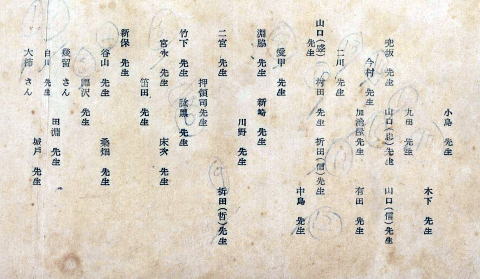 小島 先生
木下 先生
九田 先生
兜坂 先生 山口(忠)先生 山口(信)先生
今村 先生
二川 先生 加治屋先生 有田 先生
山口(盛)先生 梅田 先生 折田(信)先生
中島 先生
愛甲 先生
淵脇 先生 新崎 先生
川野 先生
二宮 先生 押領司先生 折田(哲)先生
竹下 先生 詠黒 先生
宮永 先生 笛田 先生 床次 先生
新保 先生
谷山 先生 桑畑 先生
先生
後留 さん 田淵 先生
白川 先生
大徳 さん 城戸 先生